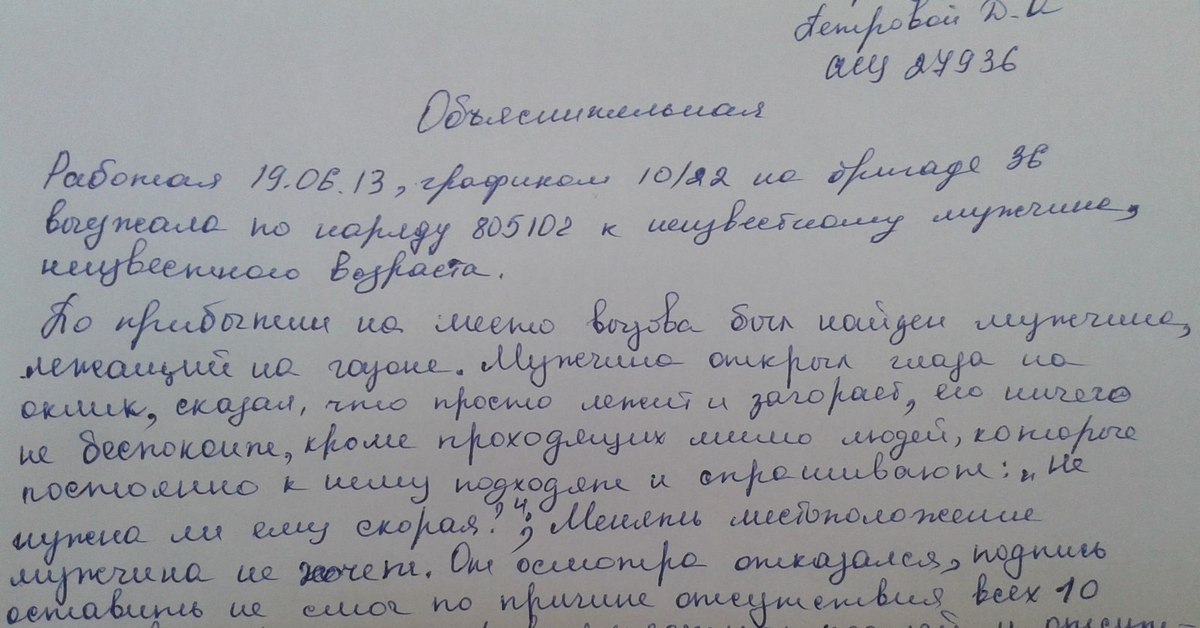 Петровой Д.А
Объяснительная
Работая 19.06.13, графиком 10/22 на бригаде 36
выезжала по наряду 805102 к неизвестному мужчине,
неизвестного возраста.
По прибытии на место вызова был найден мужчина,
лежащий на газоне. Мужчина открыл глаза на
оклик, сказал, что просто лежит и загорает, его ничего
не беспокоит, кроме проходящих мимо людей, которые
постоянно к нему подходят и спрашивают: „Не
нужна ли ему скорая?“; Менять местоположение
мужчина не хочет. От осмотра отказался, подпись
оставить не смог по причине отсутствия всех 10